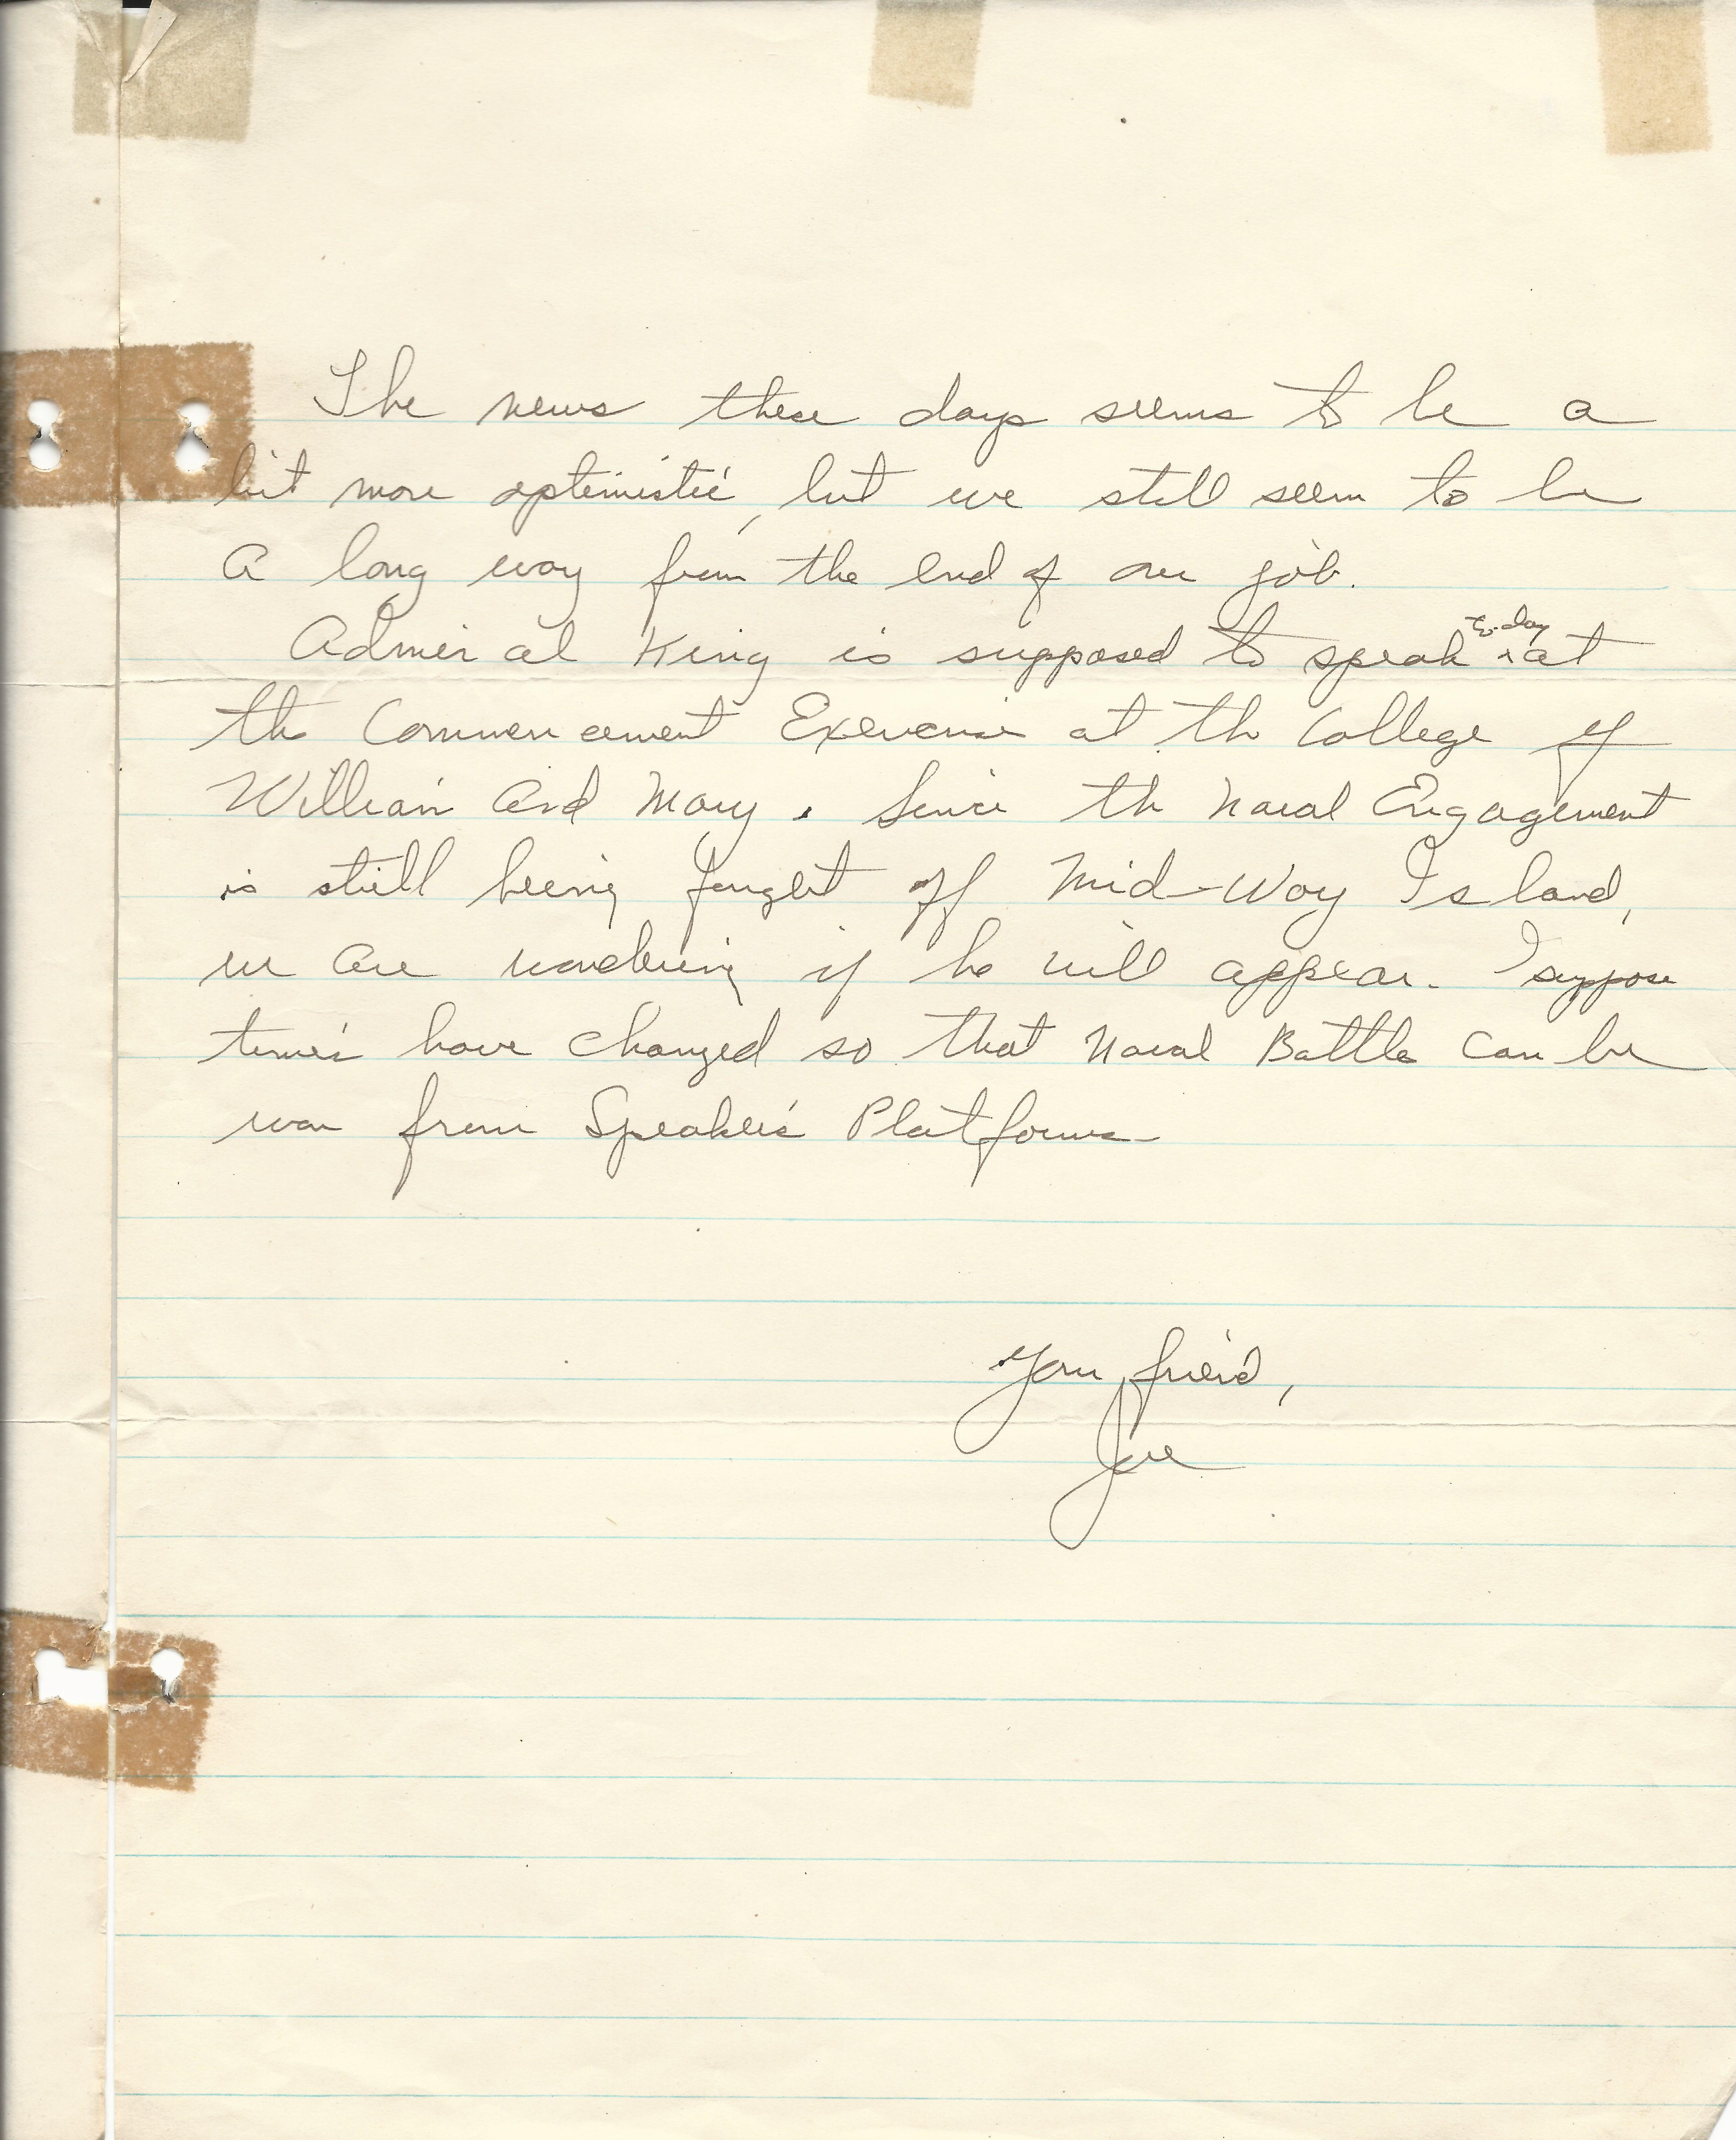 The news these days seems to be a
bit more optimistic, but we still seem to be
a long way from the end of our job.
Admiral King is supposed to speak to-day at
the Commencement Exercise at the College of
William and Mary. Since the Naval Engagement
is still being fought off Mid-Way Island,
we are wondering if he will appear. I suppose
times have changed so that Naval Battle can be
won from Speaker's Platforms
Your friend,
Joe